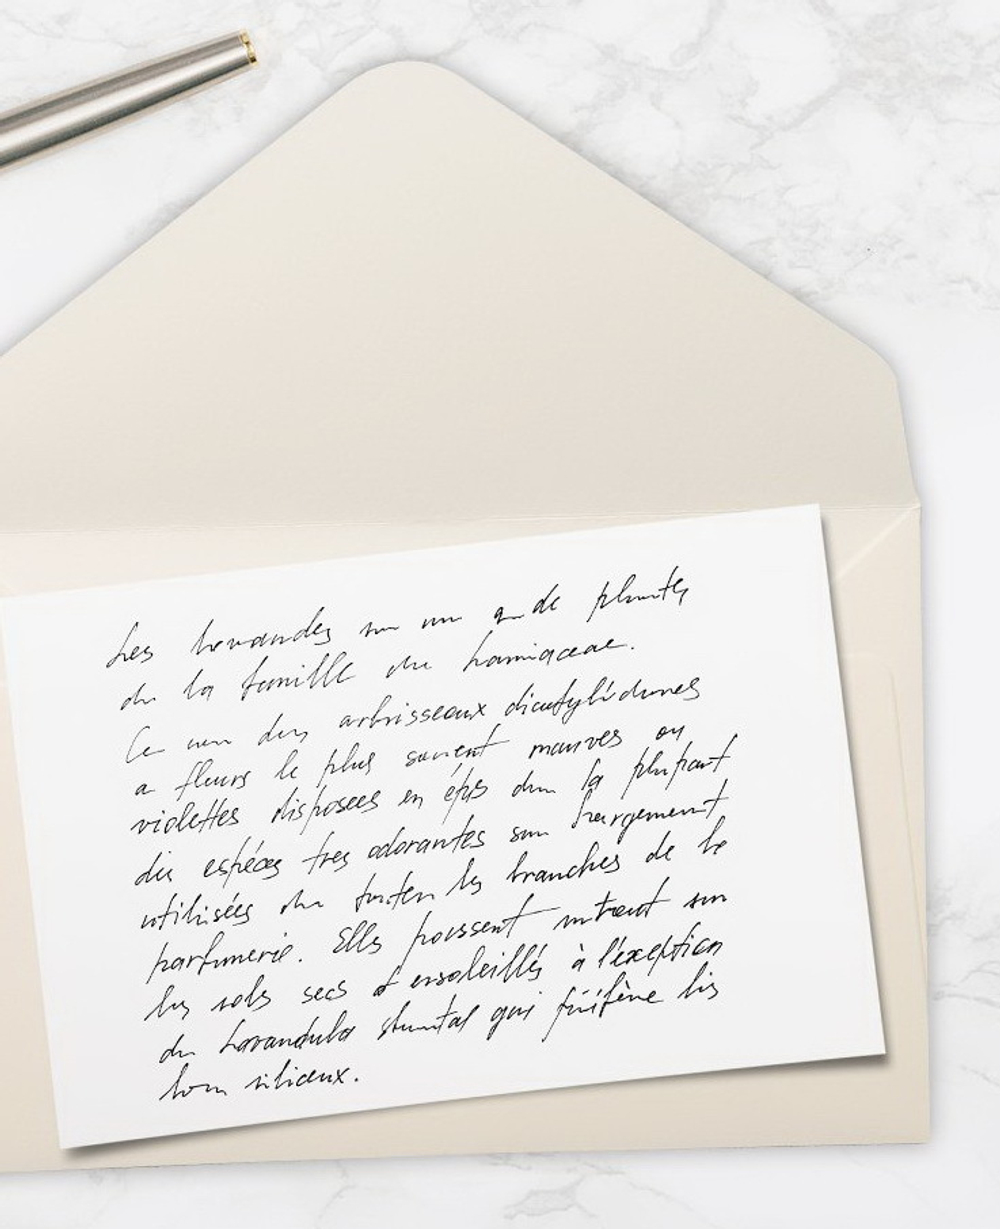 Les lavandes sont un de plantes
de la famille du Lamiaceae.
Ce des arbrisseaux dicotylédones
a fleurs le plus souvent mauves ou
violettes disposees en épis dont la plupart
des espéces tres odorantes sont largement
utilisées dans toutes les branches de la
parfumerie. Elles poussent surtout sur
les sols secs et ensoleillés à l'éxception
du Lavandula qui préfère les
siliceux.